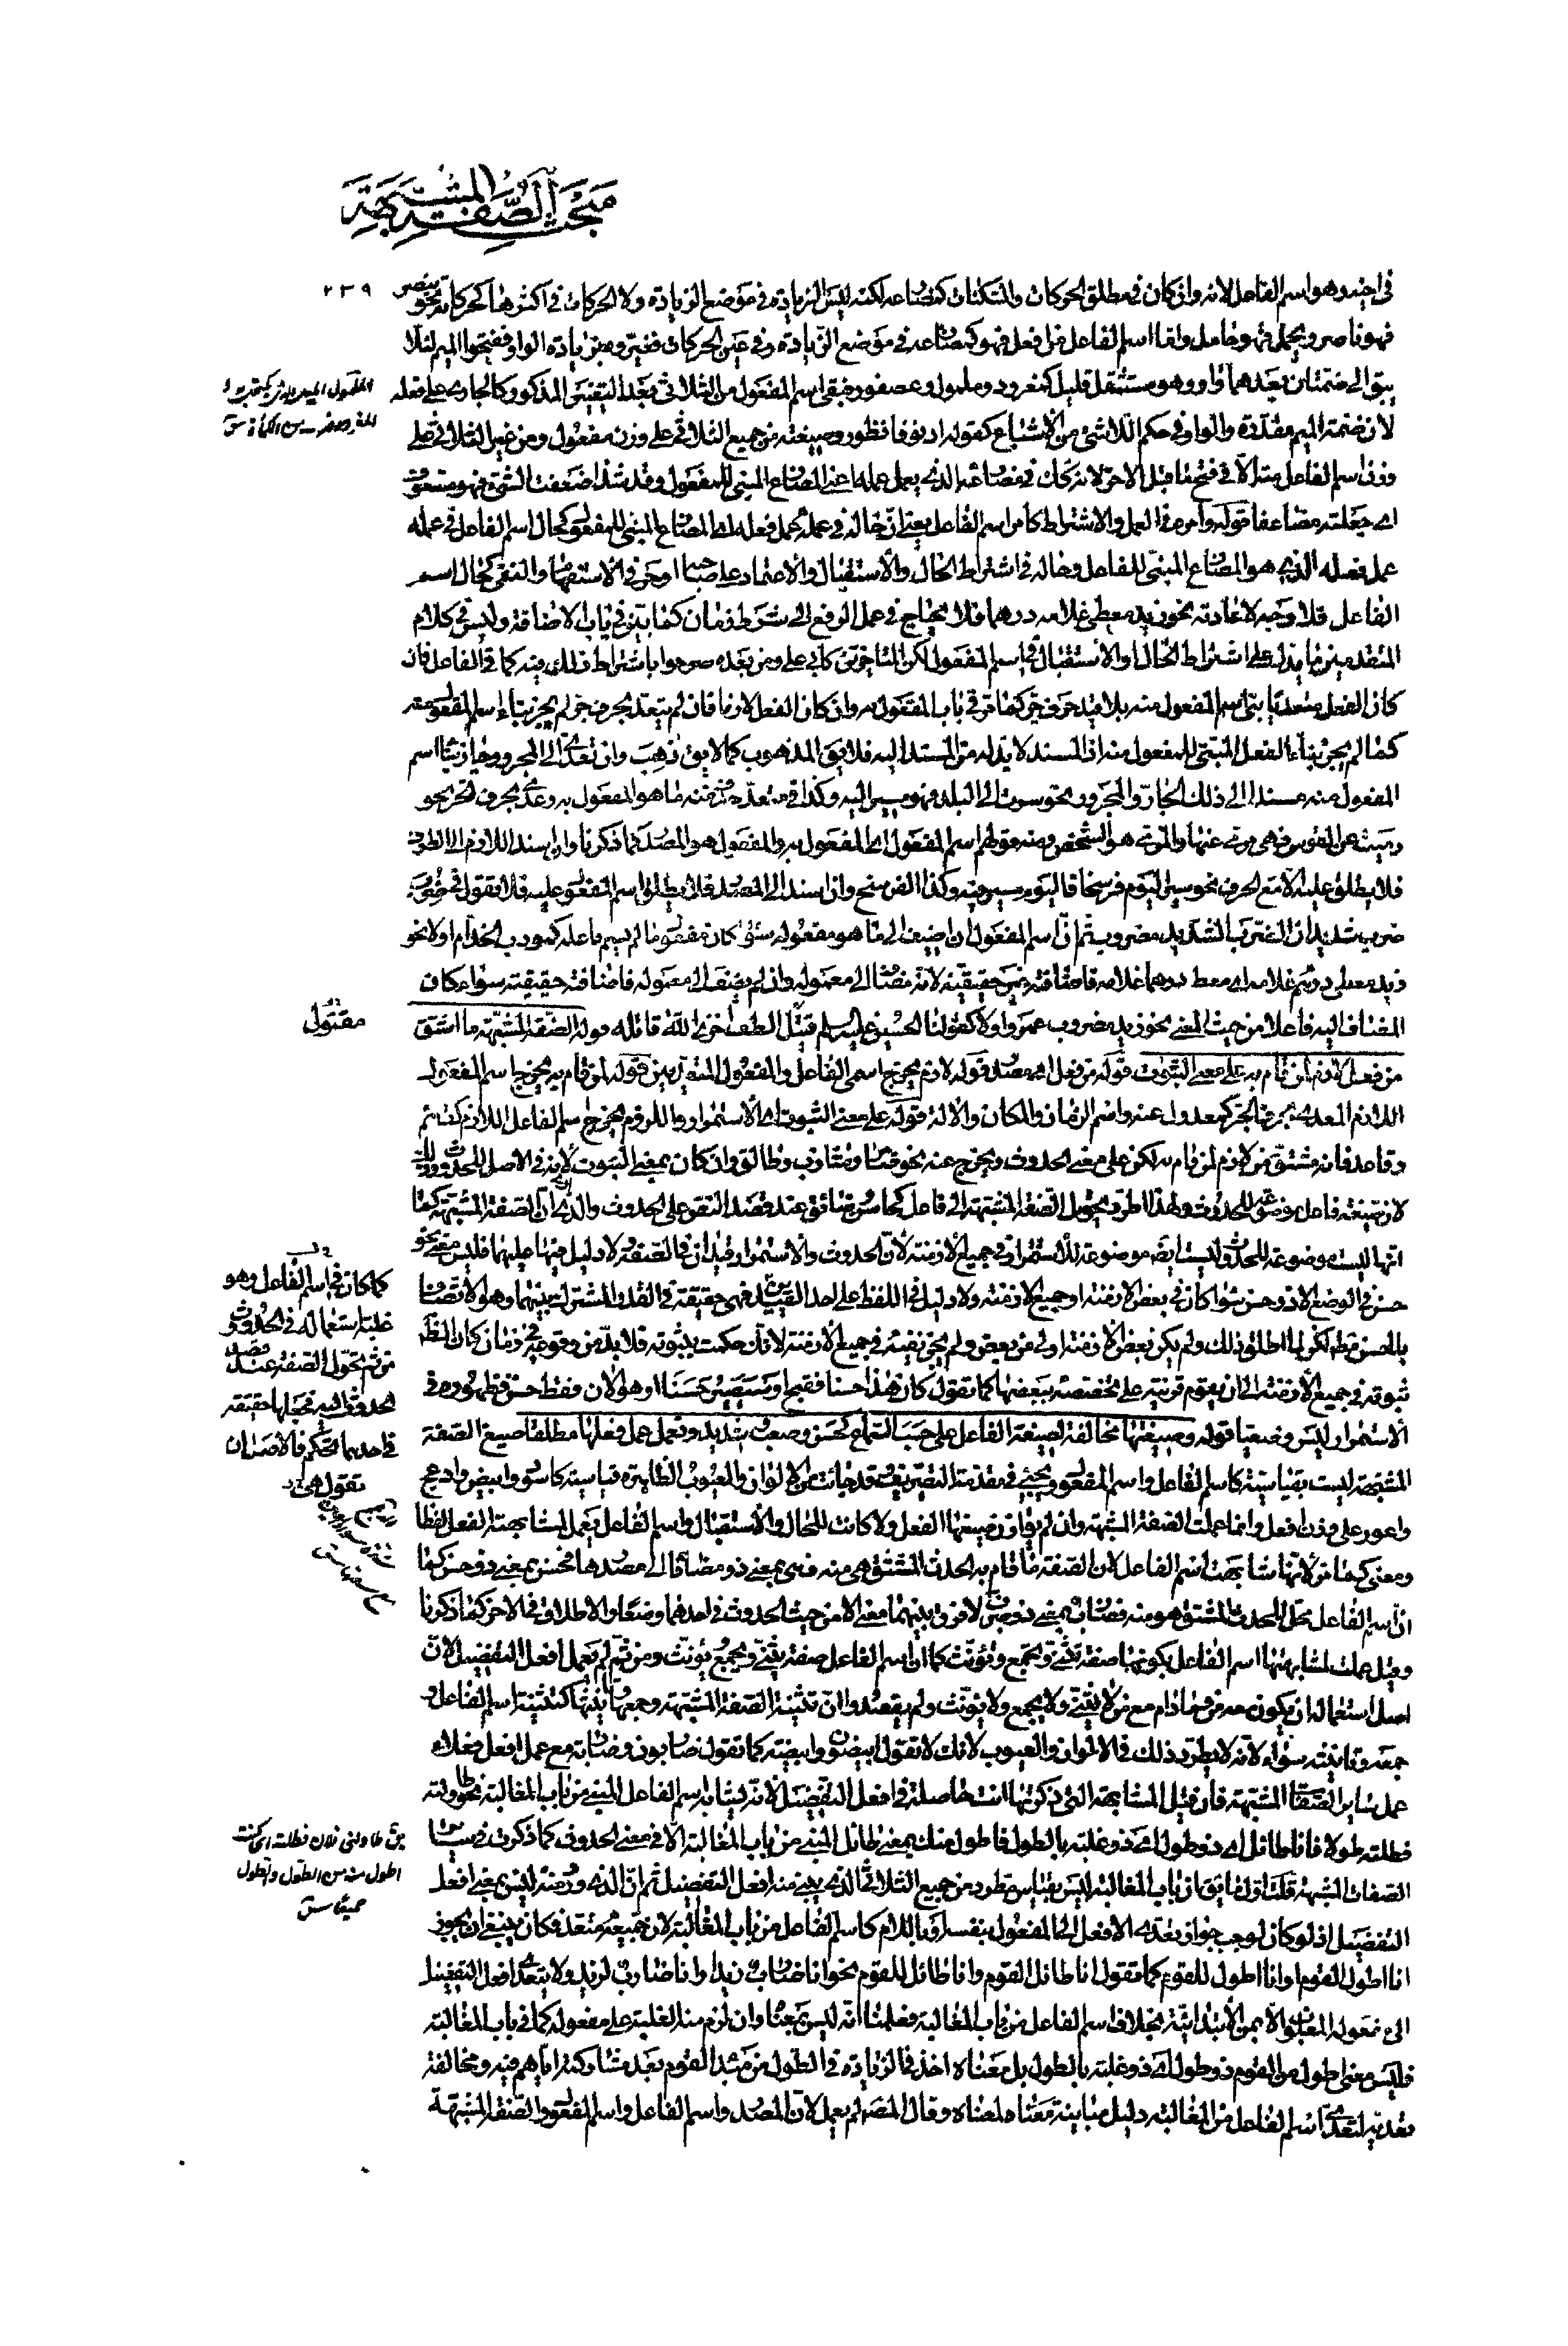 مبحث الصفة المشبهة
٢٣٩
فى اخيه وهو اسم الفاعل لانه وان كان فى مطلق الحركات والسكنات كمضارعه لكنه ليس الزيادة فى موضع الزيادة ولا الحركات فى اكثرها كحركاته نحو ينصر
فهو ناصر ويحمل فهو حامل واما اسم الفاعل من افعل فهو كمضارعه فى موضع الزيادة وفى عين الحركات فغيروه بزيادة الواو ففتحوا الميم لئلا
يتوالى ضمتان بعدهما واو وهو مستثقل قليل كمغرود وملمول وعصفور فبقى اسم المفعول من الثلاثى بعد التغيير المذكور كالجارى على فعله
لان ضمة الميم مقدرة والواو فى حكم اللاشئ من الاشباع كقوله ادنو فانظور وصيغته من جميع الثلاثى على وزن مفعول ومن غير الثلاثى على
وزن اسم الفاعل منه الا فى فتح ما قبل الاخر لانه كك فى مضارعه الذى يعمل عمله اعنى المضارع المبنى للمفعول وقد شذ اضعفت الشئ فهو مضعوف
اى جعلته مضاعفا قوله وامره فى العمل والاشتراط كامر اسم الفاعل يعنى ان حاله فى عمله عمل فعله اى المضارع المبنى للمفعول كحال اسم الفاعل فى عمله
عمل فعله الذى هو المضارع المبنى للفاعل وحاله فى اشتراط الحال والاستقبال والاعتماد على صاحبه او حرفى الاستفهام والنفى كحال اسم
الفاعل فلا وجه لاعادته نحو زيد معطى غلامه درهما فلا يحتاج فى عمل الرفع الى شرط زمان كما تبين فى باب الاضافة وليس فى كلام
المتقدمين ما يدل على اشتراط الحال او الاستقبال فى اسم المفعول لكن المتاخرين كابى على ومن بعده صرحوا باشتراط ذلك فيه كما فى الفاعل فان
كان الفعل متعديا بنى اسم المفعول منه بلا قيد حرف جر كما مر فى باب المفعول به وان كان الفعل لازما فان لم يتعد بحرف جر لم يجز بناء اسم المفعول منه
كما لم يجز بناء الفعل المبنى للمفعول منه اذ المسند لابد له من المسند اليه فلا يق المذهوب كما لايق ذهب وان تعدى الى المجرور جاز بناء اسم
المفعول منه مسندا الى ذلك الجار والمجرور نحو سرت الى البلد فهو مسير اليه وكذا فى متعد حذف منه ما هو المفعول به وعدى بحرف الجر نحو
رميت عن القوس فهى مرمى عنها والمرمى هو الشخص ومنه قولهم اسم المفعول اى المفعول به والمفعول هو المصدر كما ذكرنا واذا اسند اللازم الى الظرف
فلا يطلق عليه الا مع الحرف نحو سير اليوم فرسخا فاليوم مسير فيه وكذا الفرسخ وان اسند الى المصدر فلا يطلق اسم المفعول عليه فلا تقول فى ضرب
ضرب شديد ان الضرب الشديد مضروب ثم ان اسم المفعول ان اضيف الى ما هو مفعوله سواء كان مفعول ما لم يسم فاعله كمودب الخدام اولا نحو
زيد معطى درهم غلامه اى معطى درهما غلامه فاضافته غير حقيقية لانه مضاف الى معموله وان لم يضف الى معموله فاضافته حقيقية سواء كان
المضاف اليه فاعلا من حيث المعنى نحو زيد مضروب عمرو اولا كقولنا الحسين عليه السلم قتيل الطف اخزى الله قاتله قوله الصفة المشبهة ما اشتق
من فعل لازم لمن قام به على معنى الثبوت قوله من فعل اى مصدر قوله لازم يخرج اسمى الفاعل والمفعول المتعديين قوله لمن قام به يخرج اسم المفعول
اللازم المعدى بحرف الجر كمعدول عنه واسم الزمان والمكان والالة قوله على معنى الثبوت اى الاستمرار واللزوم يخرج اسم الفاعل اللازم كقائم
وقاعد فانه مشتق من لازم لمن قام به لكن على معنى الحدوث ويخرج عنه نحو ضامر وشازب وطالق وان كان بمعنى الثبوت لانه فى الاصل للحدوث وذلك
لان صيغة فاعل موضوعة للحدوث ولهذا اطرد تحويل الصفة المشبهة الى فاعل كحاسن وضائق عند قصد النص على الحدوث والذى ارى ان الصفة المشبهة كما
انها ليست موضوعة للحدوث ليست ايضا موضوعة للاستمرار فى جميع الازمنة لان الحدوث والاستمرار قيدان فى الصفة ولا دليل فيها عليهما فليس معنى نحو
حسن فى الوضع الا ذو حسن سواء كان فى بعض الازمنة او جميع الازمنة ولا دليل فى اللفظ على احد القيدين فهى حقيقة فى القدر المشترك بينهما وهو الاتصاف
بالحسن مطلقا لكن لما اطلق ذلك ولم يكن بعض الازمنة اولى من بعض ولم يجز نفيه فى جميع الازمنة لانك حكمت بثبوته فلابد من وقوعه فى زمان كان الظاهر
ثبوته فى جميع الازمنة الى ان يقوم قرينة على تخصصه ببعضها كما تقول كان هذا حسنا فقبح او سيصير حسنا او هو الان فقط حسن فظهوره فى
الاستمرار ليس وضعيا قوله وصيغتها مخالفة لصيغة الفاعل على حسب السماع كحسن وصعب وشديد وتعمل عمل فعلها مطلقا صيغ الصفة
المشبهة ليست بقياسية كاسم الفاعل واسم المفعول ويجئ فى مقدمة التصريف وقد جائت من الالوان والعيوب الظاهرة قياسية كاسود وابيض وادعج
واعور على وزن افعل وانما عملت الصفة المشبهة وان لم يوازن صيغتها الفعل ولا كانت للحال والاستقبال واسم الفاعل يعمل لمشابهته الفعل لفظا
ومعنى كما مر لانها شابهت اسم الفاعل لان الصفة ما قام به الحدث المشتق هى منه فهى بمعنى ذو مضافا الى مصدرها فحسن بمعنى ذو حسن كما
ان اسم الفاعل محل للحدث المشتق هو منه فضارب بمعنى ذو ضرب لا فرق بينهما معنى الا من حيث الحدوث فى احدهما وضعا والاطلاق فى الاخر كما ذكرنا
وقيل عملت لمشابهتها اسم الفاعل بكونها صفة تثنى وتجمع وتؤنث كما ان اسم الفاعل صفة يثنى ويجمع ويؤنث ومن ثم لم يعمل افعل التفضيل لان
اصل استعماله ان يكون معه من وما دام مع من لا يثنى ولا يجمع ولا يؤنث ولم يقصدوا ان تثنية الصفة المشبهة وجمعها وتانيثها كتثنية اسم الفاعل و
جمعه وتانيثه سواء لانه لا يطرد ذلك فى الالوان والعيوب لانك لا تقول ابيضون وابيضة كما تقول ضاربون وضاربة مع عمل افعل فعلاء
عمل سائر الصفات المشبهة فان قيل المشابهة التى ذكرتها انت حاصلة فى افعل التفضيل لانه يشابه اسم الفاعل المبنى من باب المغالبة نحو طاولته
فطلته طولا فانا طائل اى ذو طول اى ذو غلبة بالطول فاطول منك بمعنى طائل المبنى من باب المغالبة الا فى معنى الحدوث كما ذكرت فى سائر
الصفات المشبهة قلت اول ما يق ان باب المغالبة ليس بقياس مطرد من جميع الثلاثى الذى يبنى منه افعل التفضيل ثم ان الذى ورد منه ليس بمعنى افعل
التفضيل اذ لو كان لوجب جواز تعدى الافعل الى المفعول بنفسه او باللام كاسم الفاعل من باب المغالبة لان جميعه متعد فكان ينبغى ان يجوز
انا اطول القوم او انا اطول للقوم كما تقول انا طائل القوم وانا طائل للقوم نحو انا ضارب زيدا وانا ضارب لزيد ولا يتعدى افعل التفضيل
الى مفعوله المغلوب الا بمن الابتدائية بخلاف اسم الفاعل من باب المغالبة فعلمنا انه ليس بمعناه وان لزم منه الغلبة على مفعوله كما فى باب المغالبة
فليس معنى اطول من القوم ذو طول اى ذو غلبة بالطول بل معناه اخذ فى الزيادة فى الطول من مبدأ القوم بعد مشاركته اياهم فيه ومخالفة
تعديه لتعدى اسم الفاعل من المغالبة دليل مباينة معناه لمعناه وقال المصنف لم يعمل لان المصدر واسم الفاعل واسم المفعول والصفة المشبهة
مقتول
كما كان فى اسم الفاعل وهو
غلبة استعماله فى الحدوث و
من ثم تحول الصفة عند قصد
الحدوث اليه فجعلها حقيقة
فى احدهما تحكم فالاصل ان
تقول هى
يق طاولنى فلان فطلته اى كنت
اطول منه من الطول والطول
جميعا